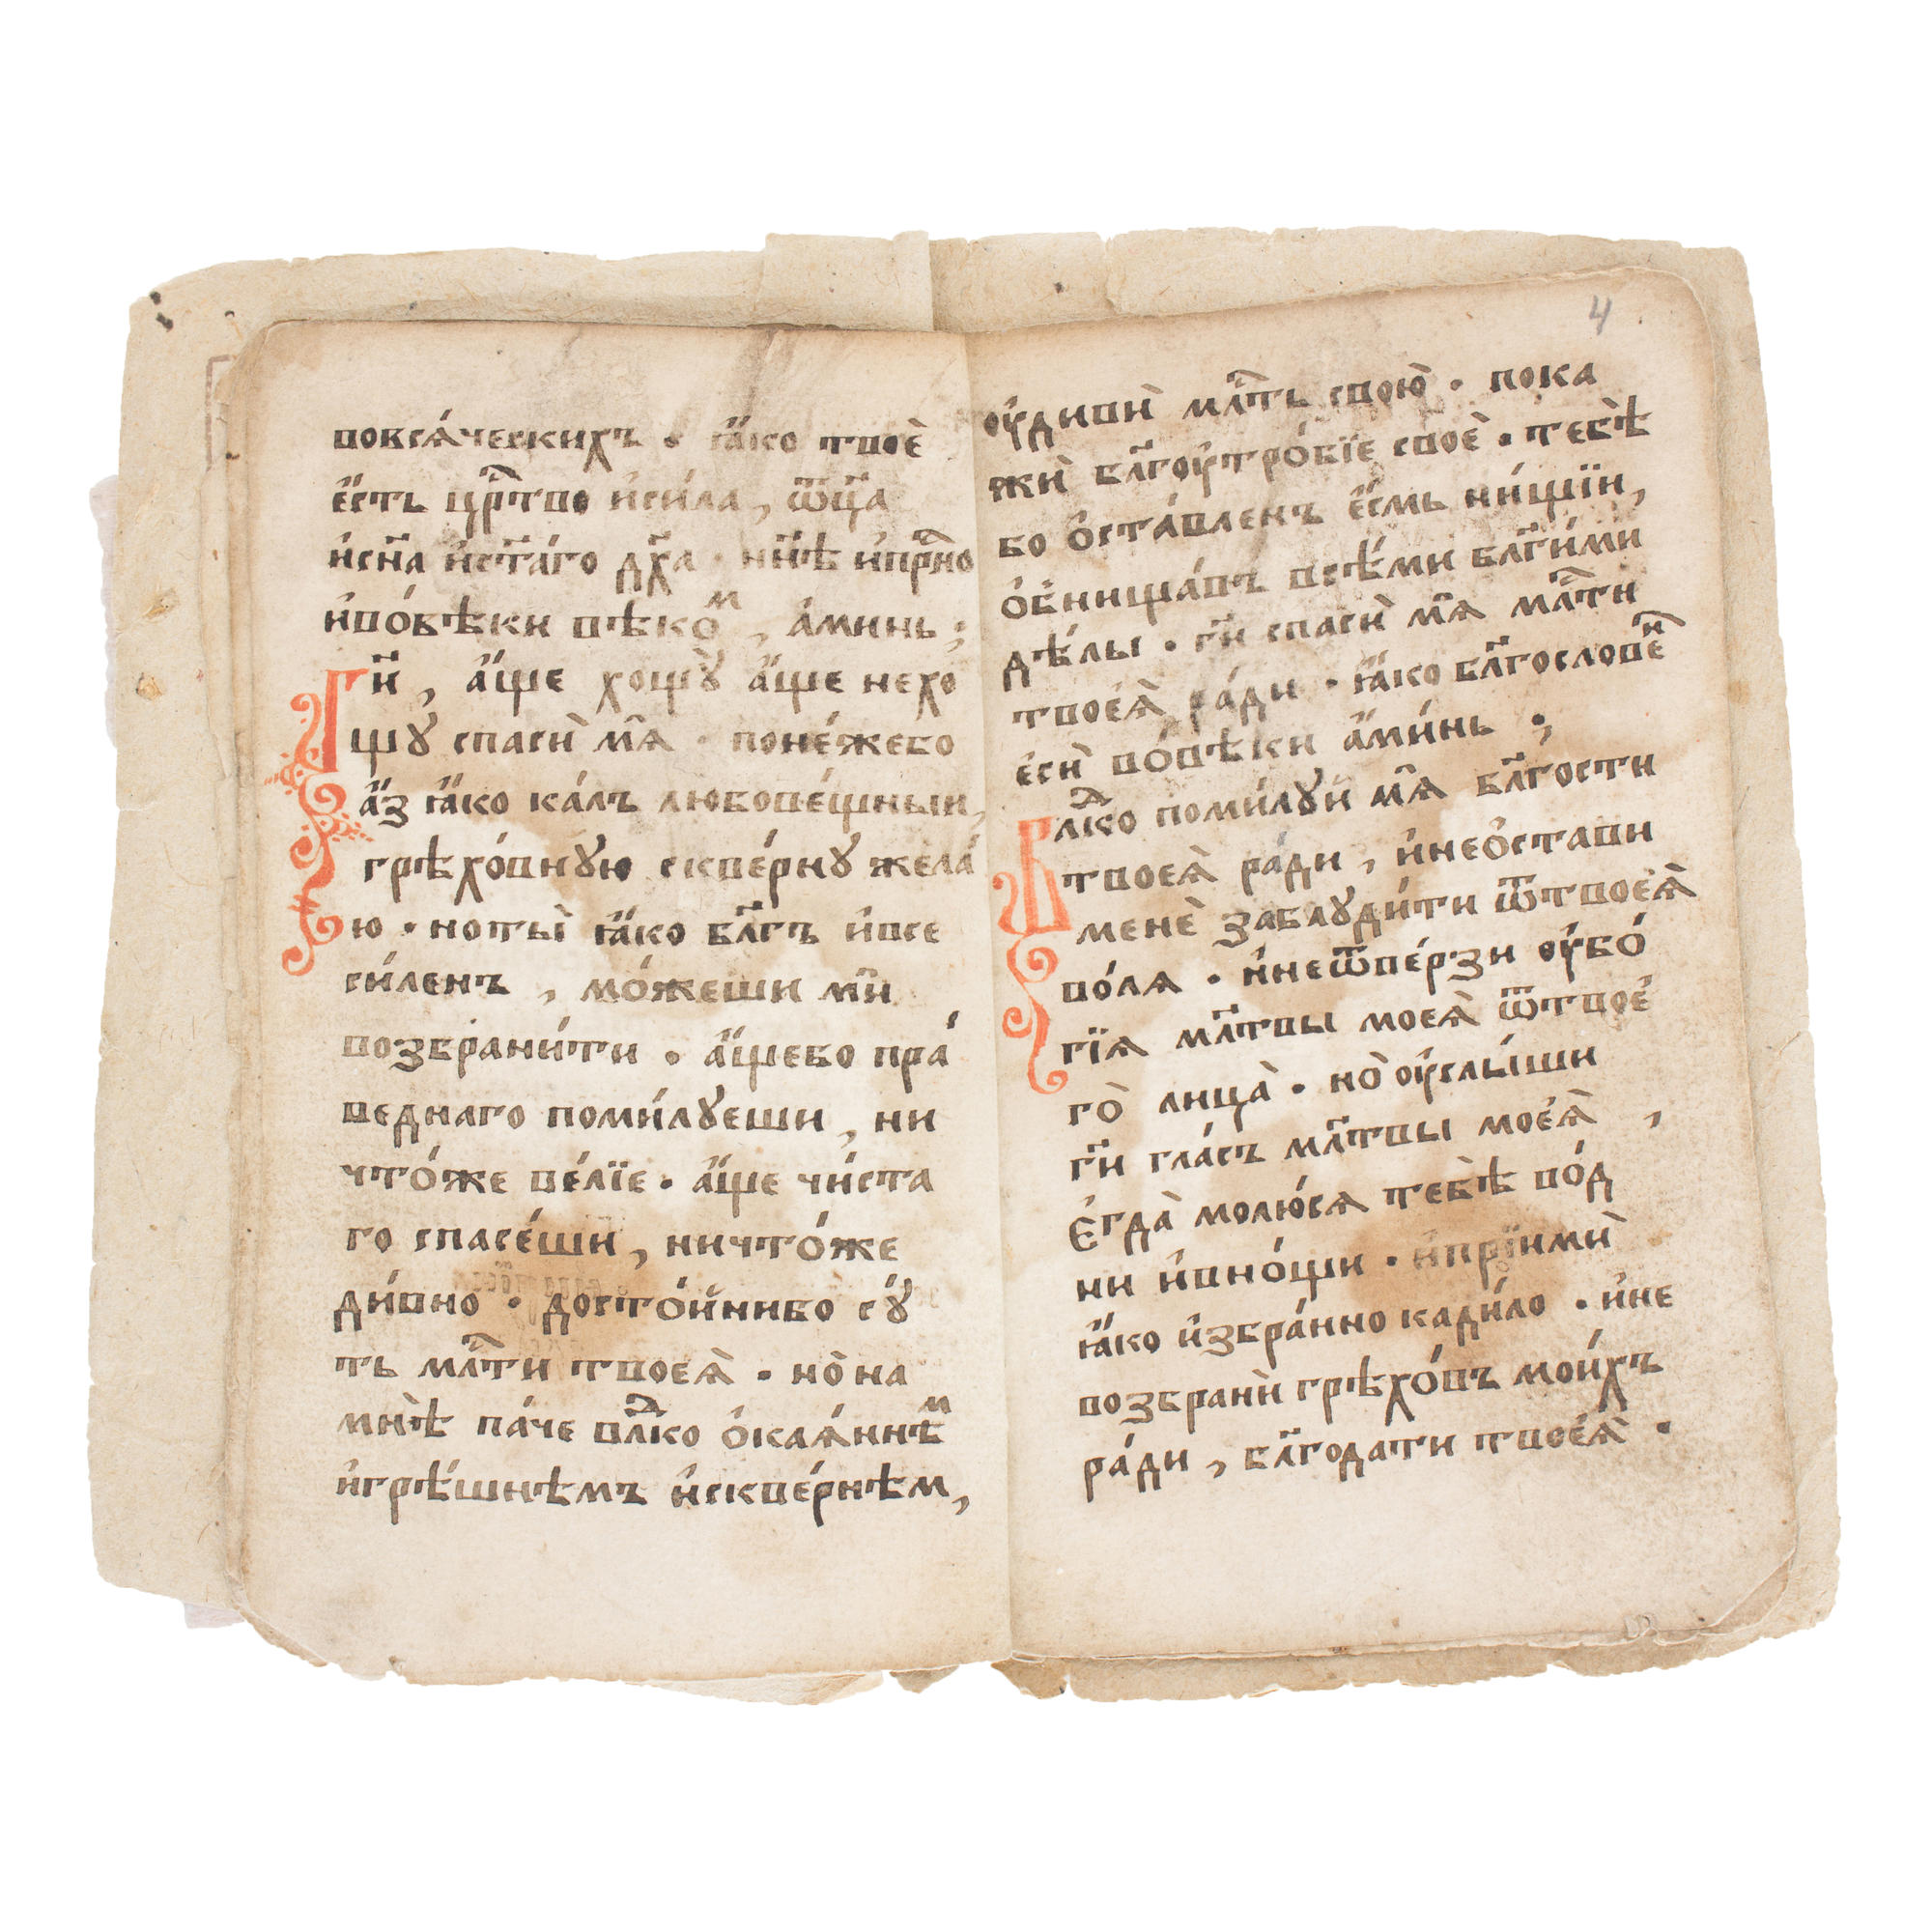 вовсѧ́ческихъ · ꙗ҆́ко твоѐ
є҆́сть црⷭ҇тво и҆си́ла, ѿц҃а
и҆сн҃а и҆ст҃а́го дх҃а · нн҃ѣ и҆прⷭ҇но
и҆во́вѣки вѣко́ⷨ, а҆ми́нь ;
Гн҃, а҆́ще хощꙋ̀ а҆́ще нехо
щꙋ̀ спасѝ мѧ̀ · поне́жебо
а҆́з ꙗ҆́ко ка́лъ любове́щныи,
грѣхо́внꙋю скве́рнꙋ жела́
ю ·ноты̀ ꙗ҆́ко бл҃гъ и҆все
си́ленъ, мо́жеши мѝ
возбрани́ти · а҆́щебо пра́
веднаго поми́лꙋеши, ни
что́же ве́лїе · а҆́ще чи́ста
го спасе́ши, ничто́же
ди́вно · досто́йнибо сꙋ́
ть млⷭ҇ти твоеѧ̀ · но̀ на
мнѣ̀ па́че влⷣко ѻ҆каѧ́ннѣⷨ
и҆грѣ́шнѣмъ и҆скве́рнѣм,
4
оу҆дивѝ млⷭ҇ть свою̀ · пока
жѝ бл҃гоꙋтро́бїе своѐ · тебѣ̀
бо ѻ҆ста́вленъ є҆́смь ни́щїи,
ѻ҆бнища́въ всѣ́ми бл҃ги́ми
дѣ́лы · гн҃ спасѝ мѧ̀ млⷭ҇ти
твоеѧ̀ ра́ди · ꙗ҆́ко бл҃гословеⷩ҇
є҆сѝ во́вѣки а҆ми́нь ;
Влⷣко поми́лꙋй мѧ̀ бл҃гости
твоеѧ̀ ра́ди, и҆неѻ҆стави
менѐ заблꙋди́ти ѿтвоеѧ̀
во́лѧ · и҆неѿве́рзи оу҆бо́
гїѧ млт҃вы моеѧ̀ ѿтвое
го̀ лица̀ · но̀ оу҆слы́ши
гн҃ гла́съ млт҃вы моеѧ̀,
Є҆гда̀ молю́сѧ тебѣ̀ во́д
ни и҆вно́щи · и҆прїимѝ
ꙗ҆́ко и҆збра́нно кади́ло · и҆не
возбранѝ грѣхо́въ мои́хъ
ра́ди, бл҃годати твоеѧ̀ ·